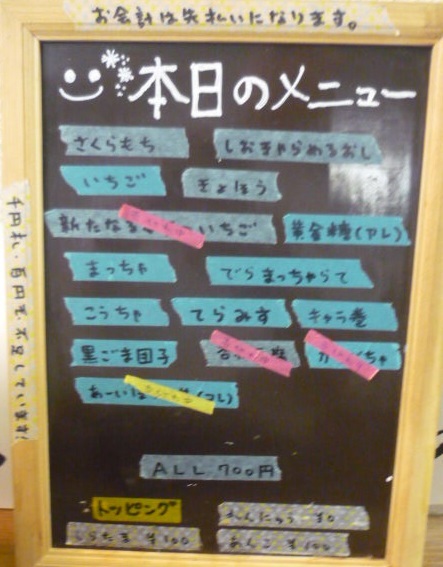 お会計は先払いになります。
本日のメニュー
さくらもち しおきゃらめるおし
いちご きょほう
新たなる いちご 黄金糖(アレ)
まっちゃ でらまっちゃらて
こうちゃ てらみす キャラ巻
黒ごま団子
あーいえ (コレ)
ALL 700円
トッピング れんにゅう ¥0
しらたま ¥100 あんこ ¥100
千円札・百円玉、不足しています!